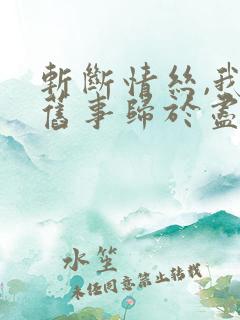 斬斷情絲,我
舊事歸於盡
水笙
未經同意禁止轉載